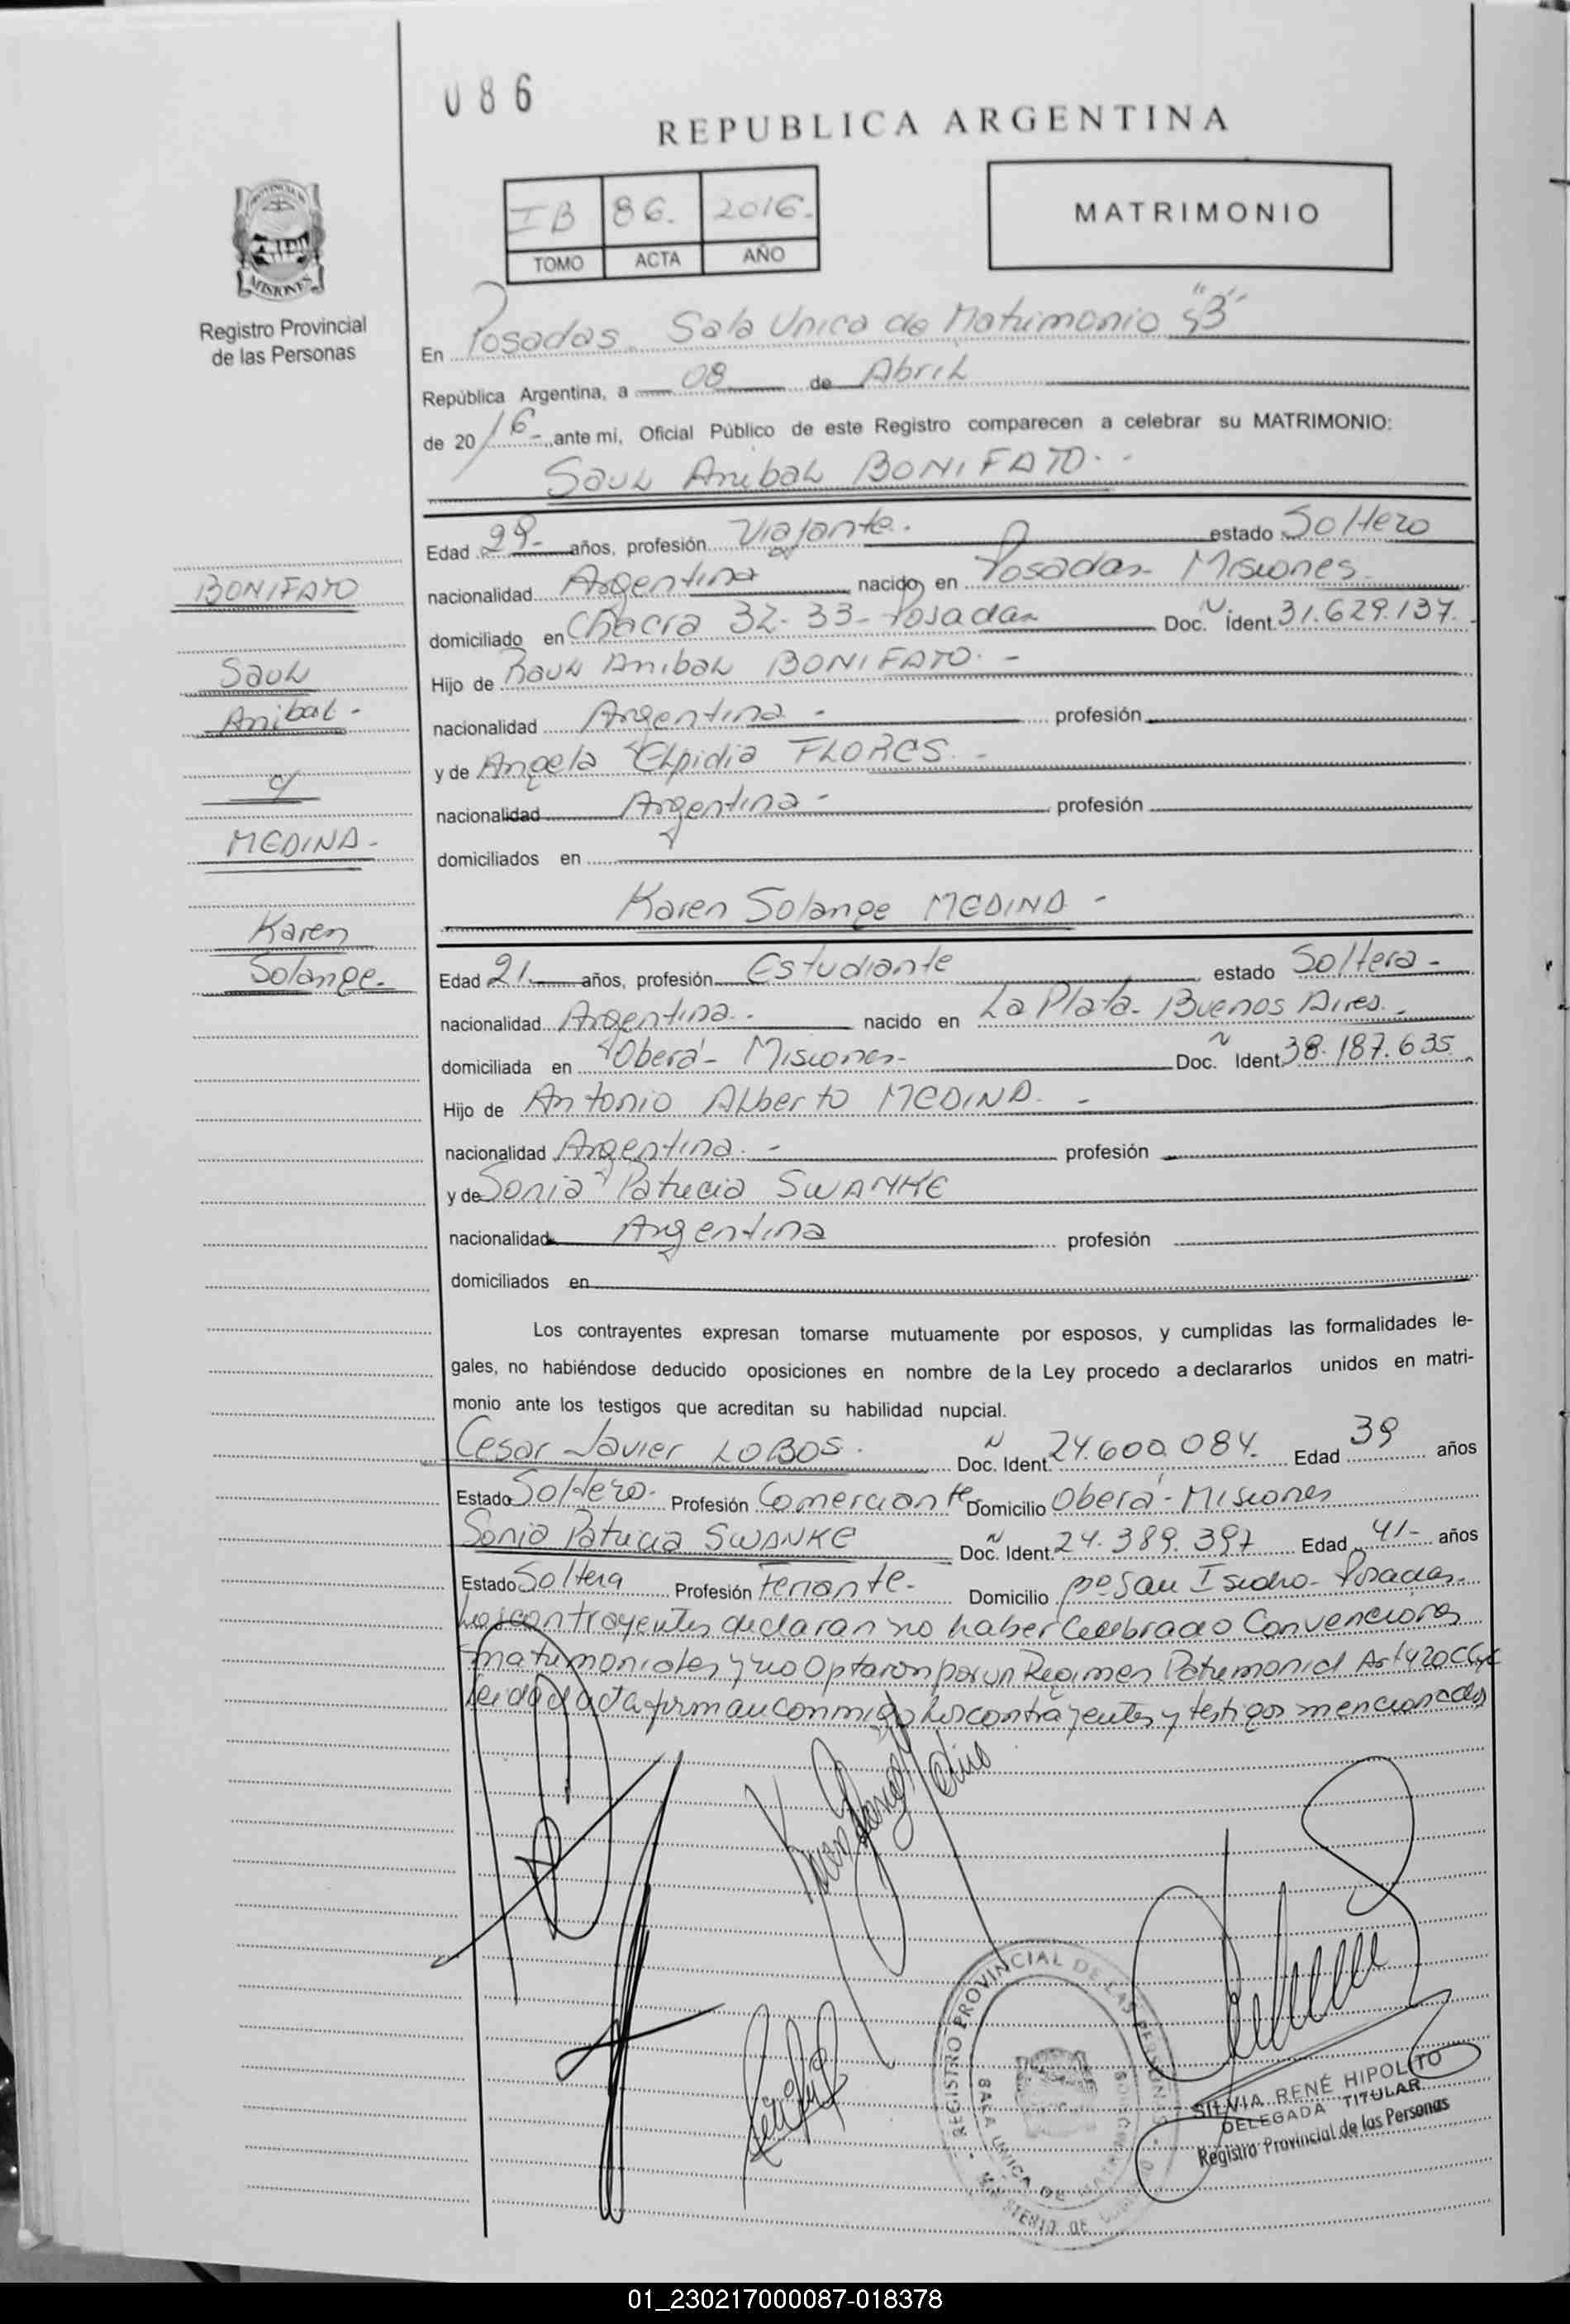 086
REPUBLICA ARGENTINA
IB 86. 2016.
TOMO ACTA AÑO
MATRIMONIO
PROVINCIA
MISIONES
Registro Provincial
de las Personas
En Posadas. Sala Unica de Matrimonio "3"
República Argentina, a 08 de Abril
de 2016- ante mi, Oficial Público de este Registro comparecen a celebrar su MATRIMONIO:
Saul Anibal BONIFATO.-
Edad 29- años, profesión Viajante. estado Soltero
nacionalidad Argentina nacido en Posadas- Misiones
domiciliado en Chacra 32-33- Posadas Doc. N Ident. 31.629.137.
Hijo de Raul Anibal BONIFATO.-
nacionalidad Argentina - profesión
y de Angela Elpidia FLORES.-
nacionalidad Argentina - profesión
domiciliados en
BONIFATO
Saul
Anibal-
c/
MEDINA-
Karen
Solange-
Karen Solange MEDINA -
Edad 21.- años, profesión Estudiante estado Soltera-
nacionalidad Argentina.- nacido en La Plata- Buenos Aires.-
domiciliada en Oberá- Misiones- Doc. N Ident. 38.187.635
Hijo de Antonio Alberto MEDINA. -
nacionalidad Argentina.- profesión
y de Sonia Patricia SWANKE
nacionalidad Argentina profesión
domiciliados en
Los contrayentes expresan tomarse mutuamente por esposos, y cumplidas las formalidades le-
gales, no habiéndose deducido oposiciones en nombre de la Ley procedo a declararlos unidos en matri-
monio ante los testigos que acreditan su habilidad nupcial.
Cesar Javier LOBOS. Doc. N Ident. 24.600.084. Edad 39 años
Estado Soltero- Profesión Comerciante Domicilio Oberá- Misiones
Sonia Patricia SWANKE Doc. N Ident. 24.389.397 Edad 41- años
Estado Soltera Profesión Feriante- Domicilio Bº San Isidro- Posadas.-
Los contrayentes declaran no haber Celebrado Convenciones
matrimoniales y no Optaron por un Regimen Patrimonial Art 420 CCyC
Leida el acta firman conmigo los contrayentes y testigos mencionados
Karen Solange Medina
REGISTRO PROVINCIAL DE LAS PERSONAS
SALA UNICA DE
MINISTERIO DE
SILVIA RENÉ HIPOLITO
DELEGADA TITULAR
Registro Provincial de las Personas
01_230217000087-018378